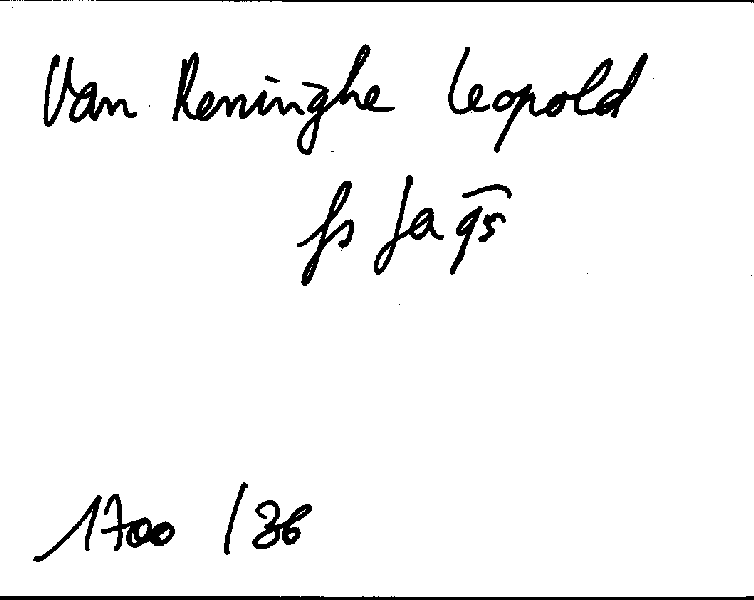 Van Reninghe Leopold
fs Jaqs
1700 / 36